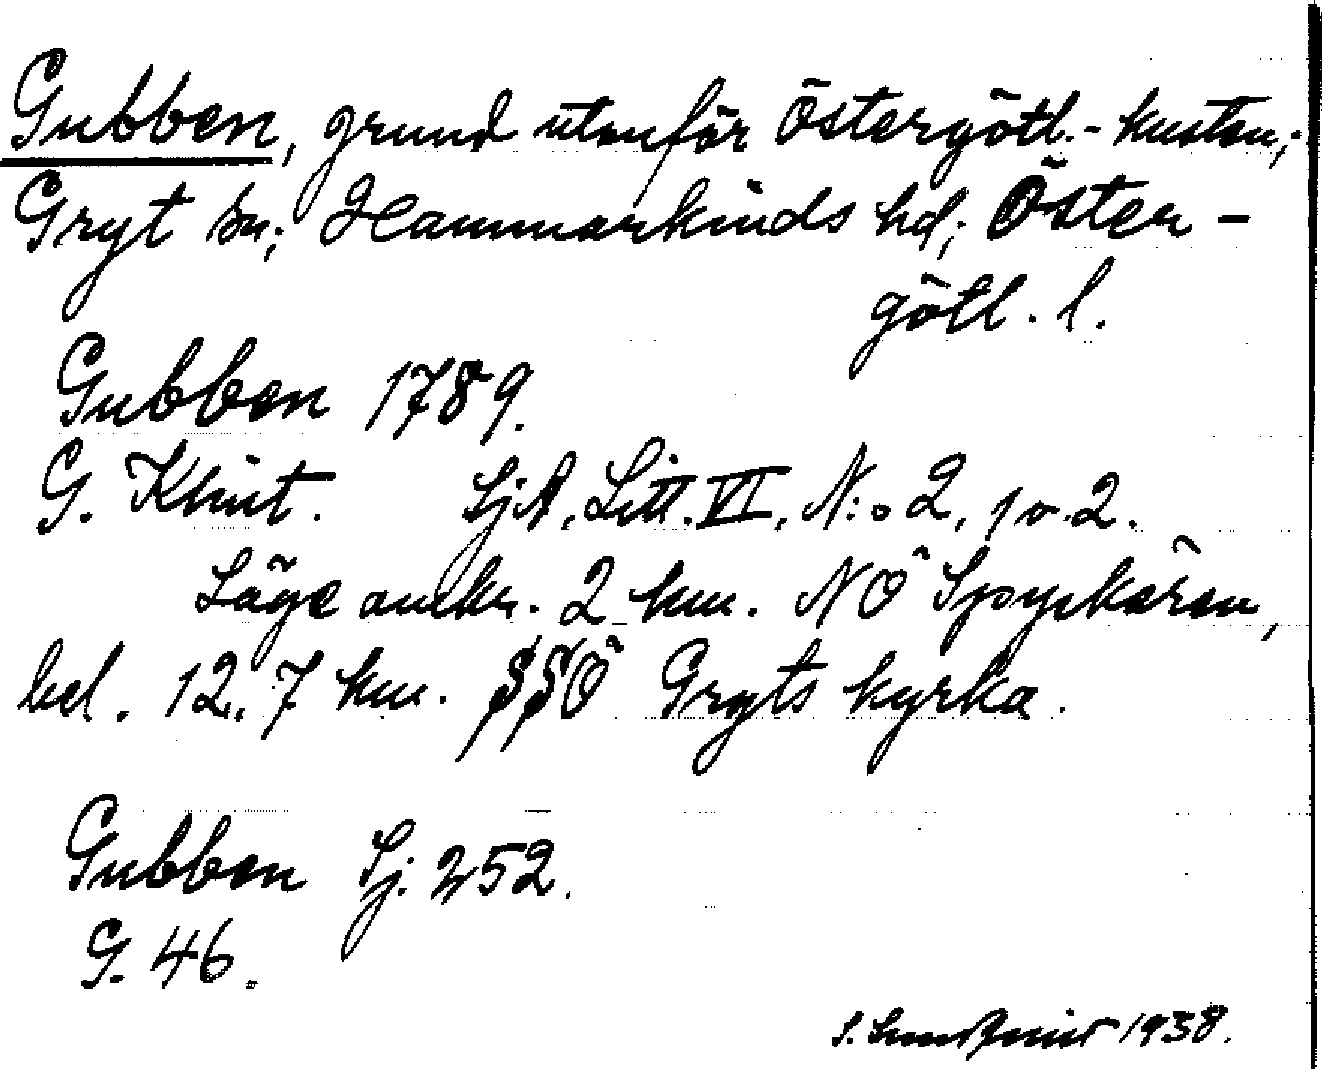 Gubben, grund utanför Östergötl.-kusten,
Gryt sn; Hammarkinds hd; Öster-
götl. l.
Gubben 1789.
G. Klint. SjA, Litt. VI, N:o 2, 1 o. 2.
Läge omkr. 2 km. NÖ Spyckören,
bel. 12,7 km. SSÖ Gryts kyrka.
Gubben Sj. 252.
G. 46.
S. 1938.